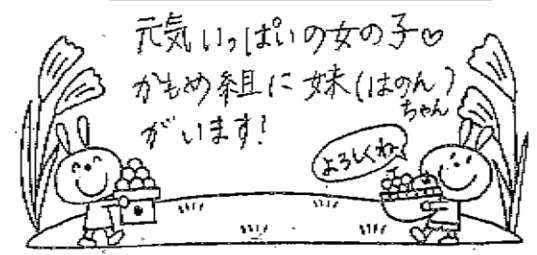 元気いっぱいの女の子♡
かもめ組に妹(はのんちゃん)
がいます!
よろしくねっ